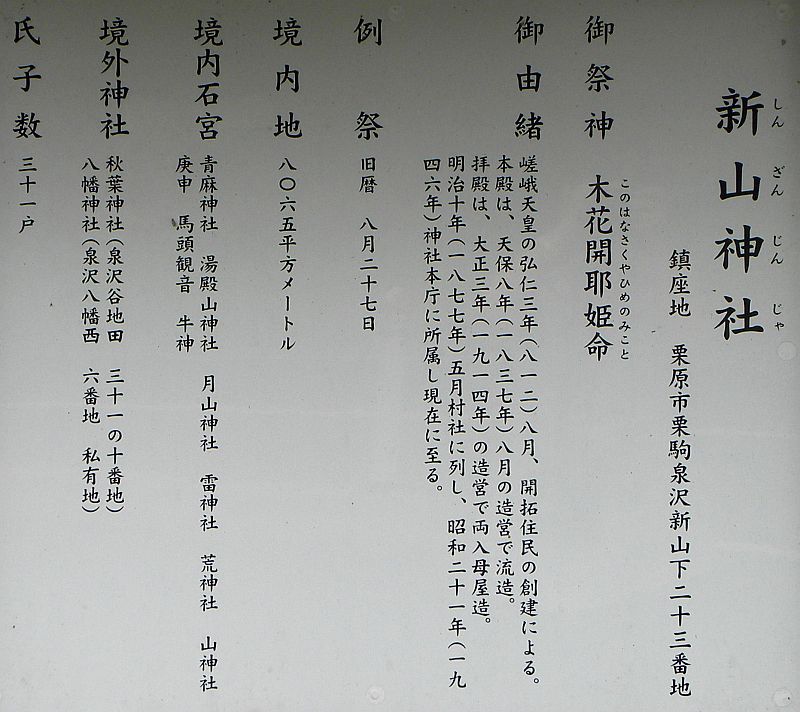 新山神社
しん ざん じん じゃ
鎮座地 栗原市栗駒泉沢新山下二十三番地
御祭神 木花開耶姫命
このはなさくやひめのみこと
御由緒 嵯峨天皇の弘仁三年(八一二)八月、開拓住民の創建による。
本殿は、天保八年(一八三七年)八月の造営で流造。
拝殿は、大正三年(一九一四年)の造営で両入母屋造。
明治十年(一八七七年)五月村社に列し、昭和二十一年(一九
四六年)神社本庁に所属し現在に至る。
例祭 旧暦 八月二十七日
境内地 八〇六五平方メートル
境内石宮 青麻神社 湯殿山神社 月山神社 雷神社 荒神社 山神社
庚申 馬頭観音 牛神
境外神社 秋葉神社(泉沢谷地田 三十一の十番地)
八幡神社(泉沢八幡西 六番地 私有地)
氏子数 三十一戸